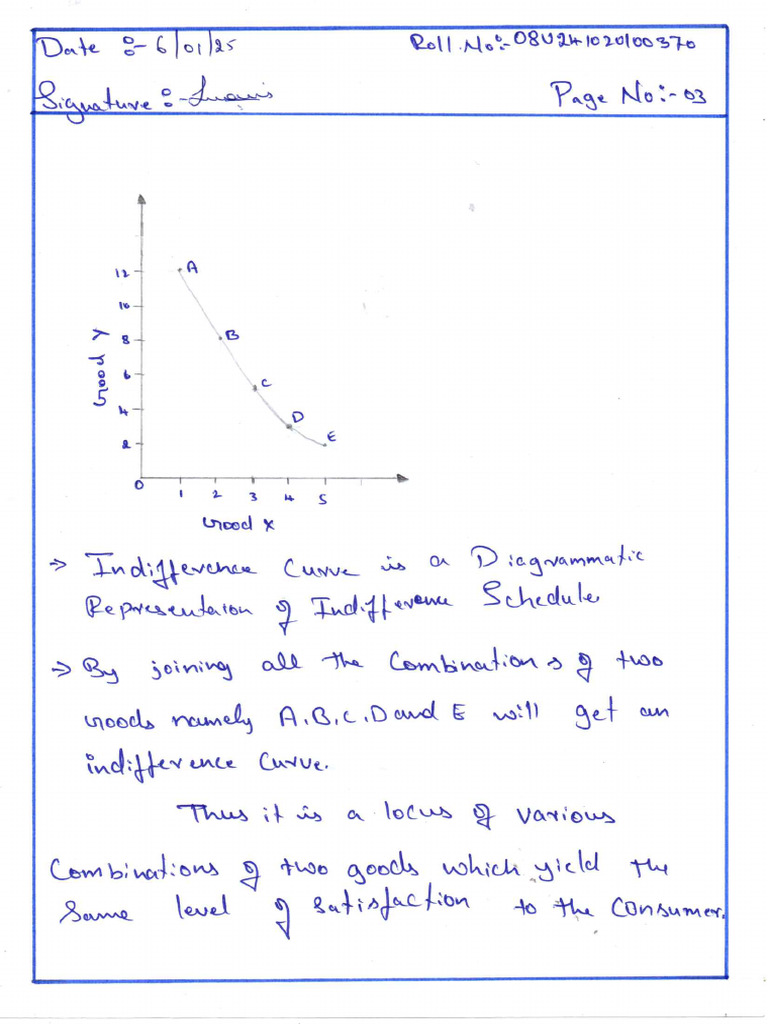 Date :- 6/01/25
Roll.No:- 08U241020100370
Signature :-
Page No:- 03
12
A
10
8
B
6
C
4
D
2
E
Good Y
0 1 2 3 4 5
Good X
→ Indifference Curve is a Diagrammatic
Representaion of Indifference Schedule
→ By joining all the Combinations of two
Goods namely A.B.C.D and E will get an
indifference Curve.
Thus it is a locus of various
Combinations of two goods which yield the
Same level of satisfaction to the Consumer.